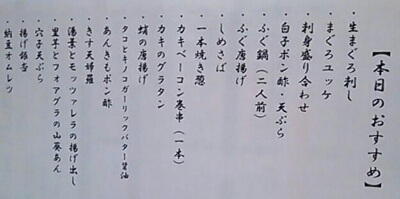 【本日のおすすめ】
・生まぐろ刺し
・まぐろユッケ
・刺身盛り合わせ
・白子ポン酢・天ぷら
・ふぐ鍋(二人前)
・ふぐ唐揚げ
・しめさば
・一本焼き葱
・カキベーコン巻串(一本)
・カキのグラタン
・蛸の唐揚げ
・タコとキノコガーリックバター醤油
・あんきもポン酢
・きす天婦羅
・湯葉とモッツァレラの揚げ出し
・里芋とフォアグラの山葵あん
・穴子天ぷら
揚げ銀杏
・納豆オムレツ